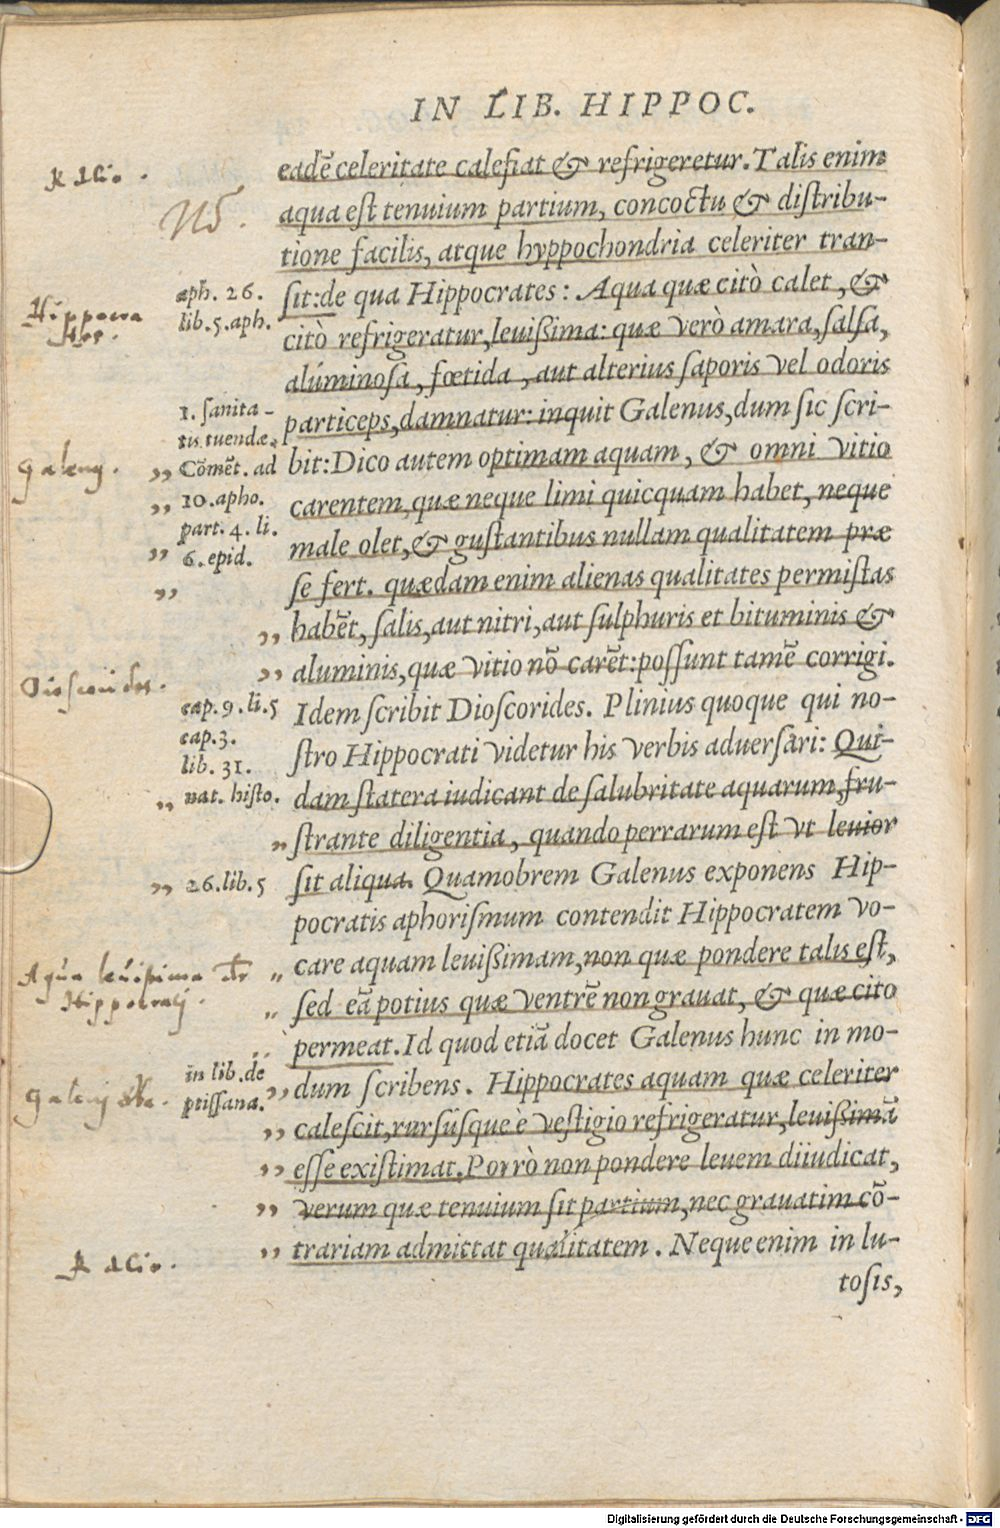 IN LIB. HIPPOC.
eadē celeritate calefiat & refrigeretur. Talis enim
aqua est tenuium partium, concoctu & distribu-
tione facilis, atque hyppochondria celeriter tran-
sit: de qua Hippocrates: Aqua quæ citò calet, &
citò refrigeratur, leuißima: quæ verò amara, salsa,
aluminosa, fœtida, aut alterius saporis vel odoris
particeps, damnatur: inquit Galenus, dum sic scri-
bit: Dico autem optimam aquam, & omni vitio
carentem, quæ neque limi quicquam habet, neque
male olet, & gustantibus nullam qualitatem præ
se fert. quædam enim alienas qualitates permistas
„ habēt, salis, aut nitri, aut sulphuris et bituminis &
„ aluminis, quæ vitio nō carēt: possunt tamē corrigi.
Idem scribit Dioscorides. Plinius quoque qui no-
stro Hippocrati videtur his verbis aduersari: Qui-
dam statera iudicant de salubritate aquarum, fru-
„ strante diligentia, quando perrarum est vt leuior
sit aliqua. Quamobrem Galenus exponens Hip-
pocratis aphorismum contendit Hippocratem vo-
„ care aquam leuißimam, non quæ pondere talis est,
„ sed eā potius quæ ventrē non grauat, & quæ cito
„ permeat. Id quod etiā docet Galenus hunc in mo-
„ dum scribens. Hippocrates aquam quæ celeriter
„ calescit, rursúsque è vestigio refrigeratur, leuißimā
„ esse existimat. Porrò non pondere leuem diiudicat,
„ verum quæ tenuium sit partium, nec grauatim cō-
„ trariam admittat qualitatem. Neque enim in lu-
tosis,
Hippocra
tes.
aph. 26.
lib. 5. aph.
1. sanita-
tis tuendæ.
Galenus.
„ Cōmēt. ad
„ 10. apho.
part. 4. li.
„ 6. epid.
„
Dioscorides.
cap. 9. li. 5
cap. 3.
lib. 31.
„ nat. histo.
„ 26. lib. 5
Aqua leuissima
Hippocrati.
in lib. de
ptissana.
Galeni